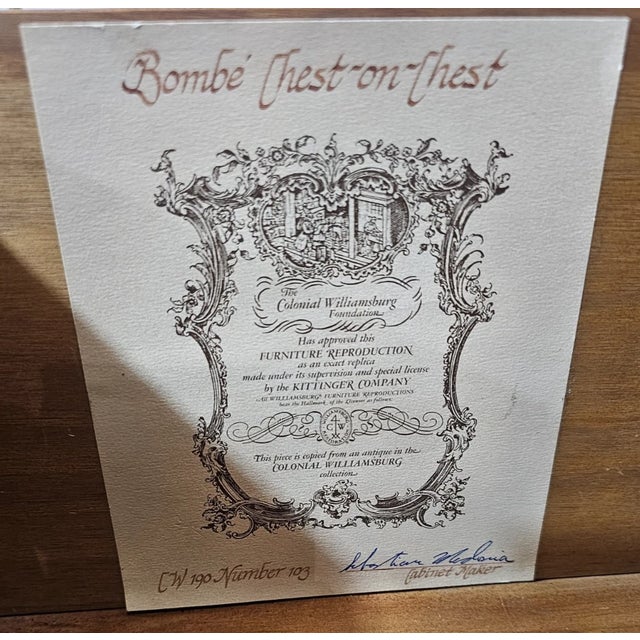 Bombé Chest-on-Chest
The
Colonial Williamsburg
Foundation
Has approved this
FURNITURE REPRODUCTION
as an exact replica
made under its supervision and special license
by the KITTINGER COMPANY
All WILLIAMSBURG® FURNITURE REPRODUCTIONS
bear the Hallmark of the Licensor as follows:
WILLIAMSBURG
CW
This piece is copied from an antique in the
COLONIAL WILLIAMSBURG
collection
CW 190 Number 103
Cabinet Maker